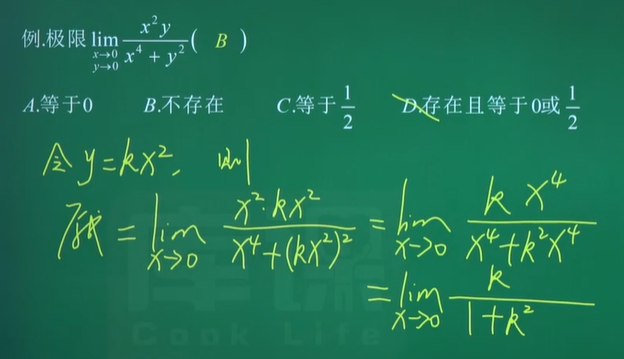 例.极限 lim x→0 y→0 x²y / (x⁴ + y²) ( B )
A.等于0 B.不存在 C.等于 1/2 D.存在且等于0或 1/2
令 y=kx², 则
原式 = lim x→0 x²·kx² / (x⁴+(kx²)²) = lim x→0 k x⁴ / (x⁴+k²x⁴)
= lim x→0 k / (1+k²)
库课
Cook Life